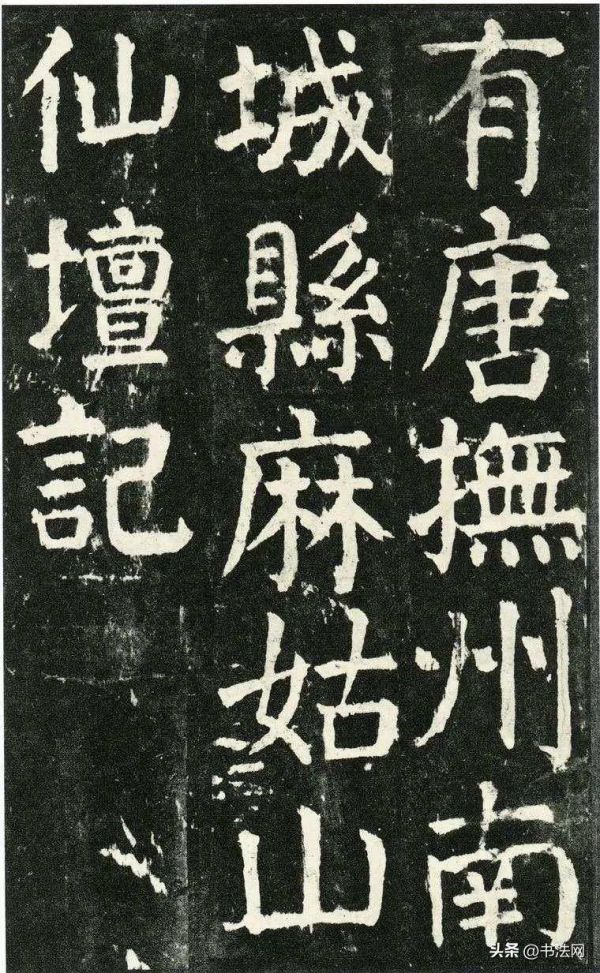 有唐撫州南
城縣麻姑山
仙壇記
头条 @书法网